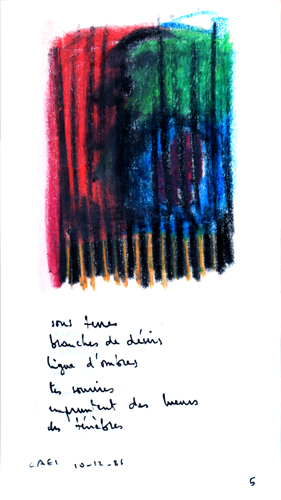 sous terres
branches de désirs
ligne d'ombres
tes sourires
empruntent des lueurs
des ténèbres
10-12-86
5